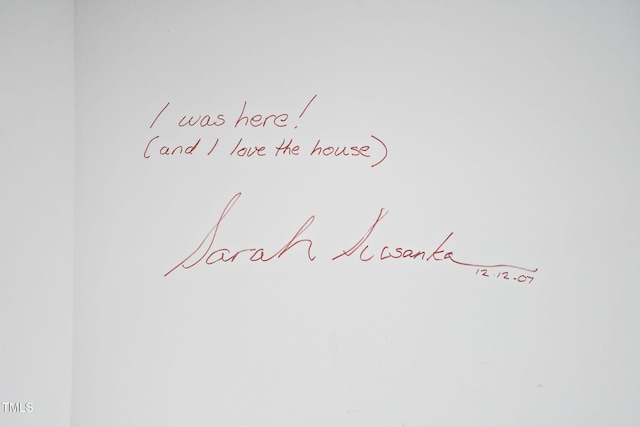 I was here!
(and I love the house)
Sarah Susanka
12.12.07
TMLS